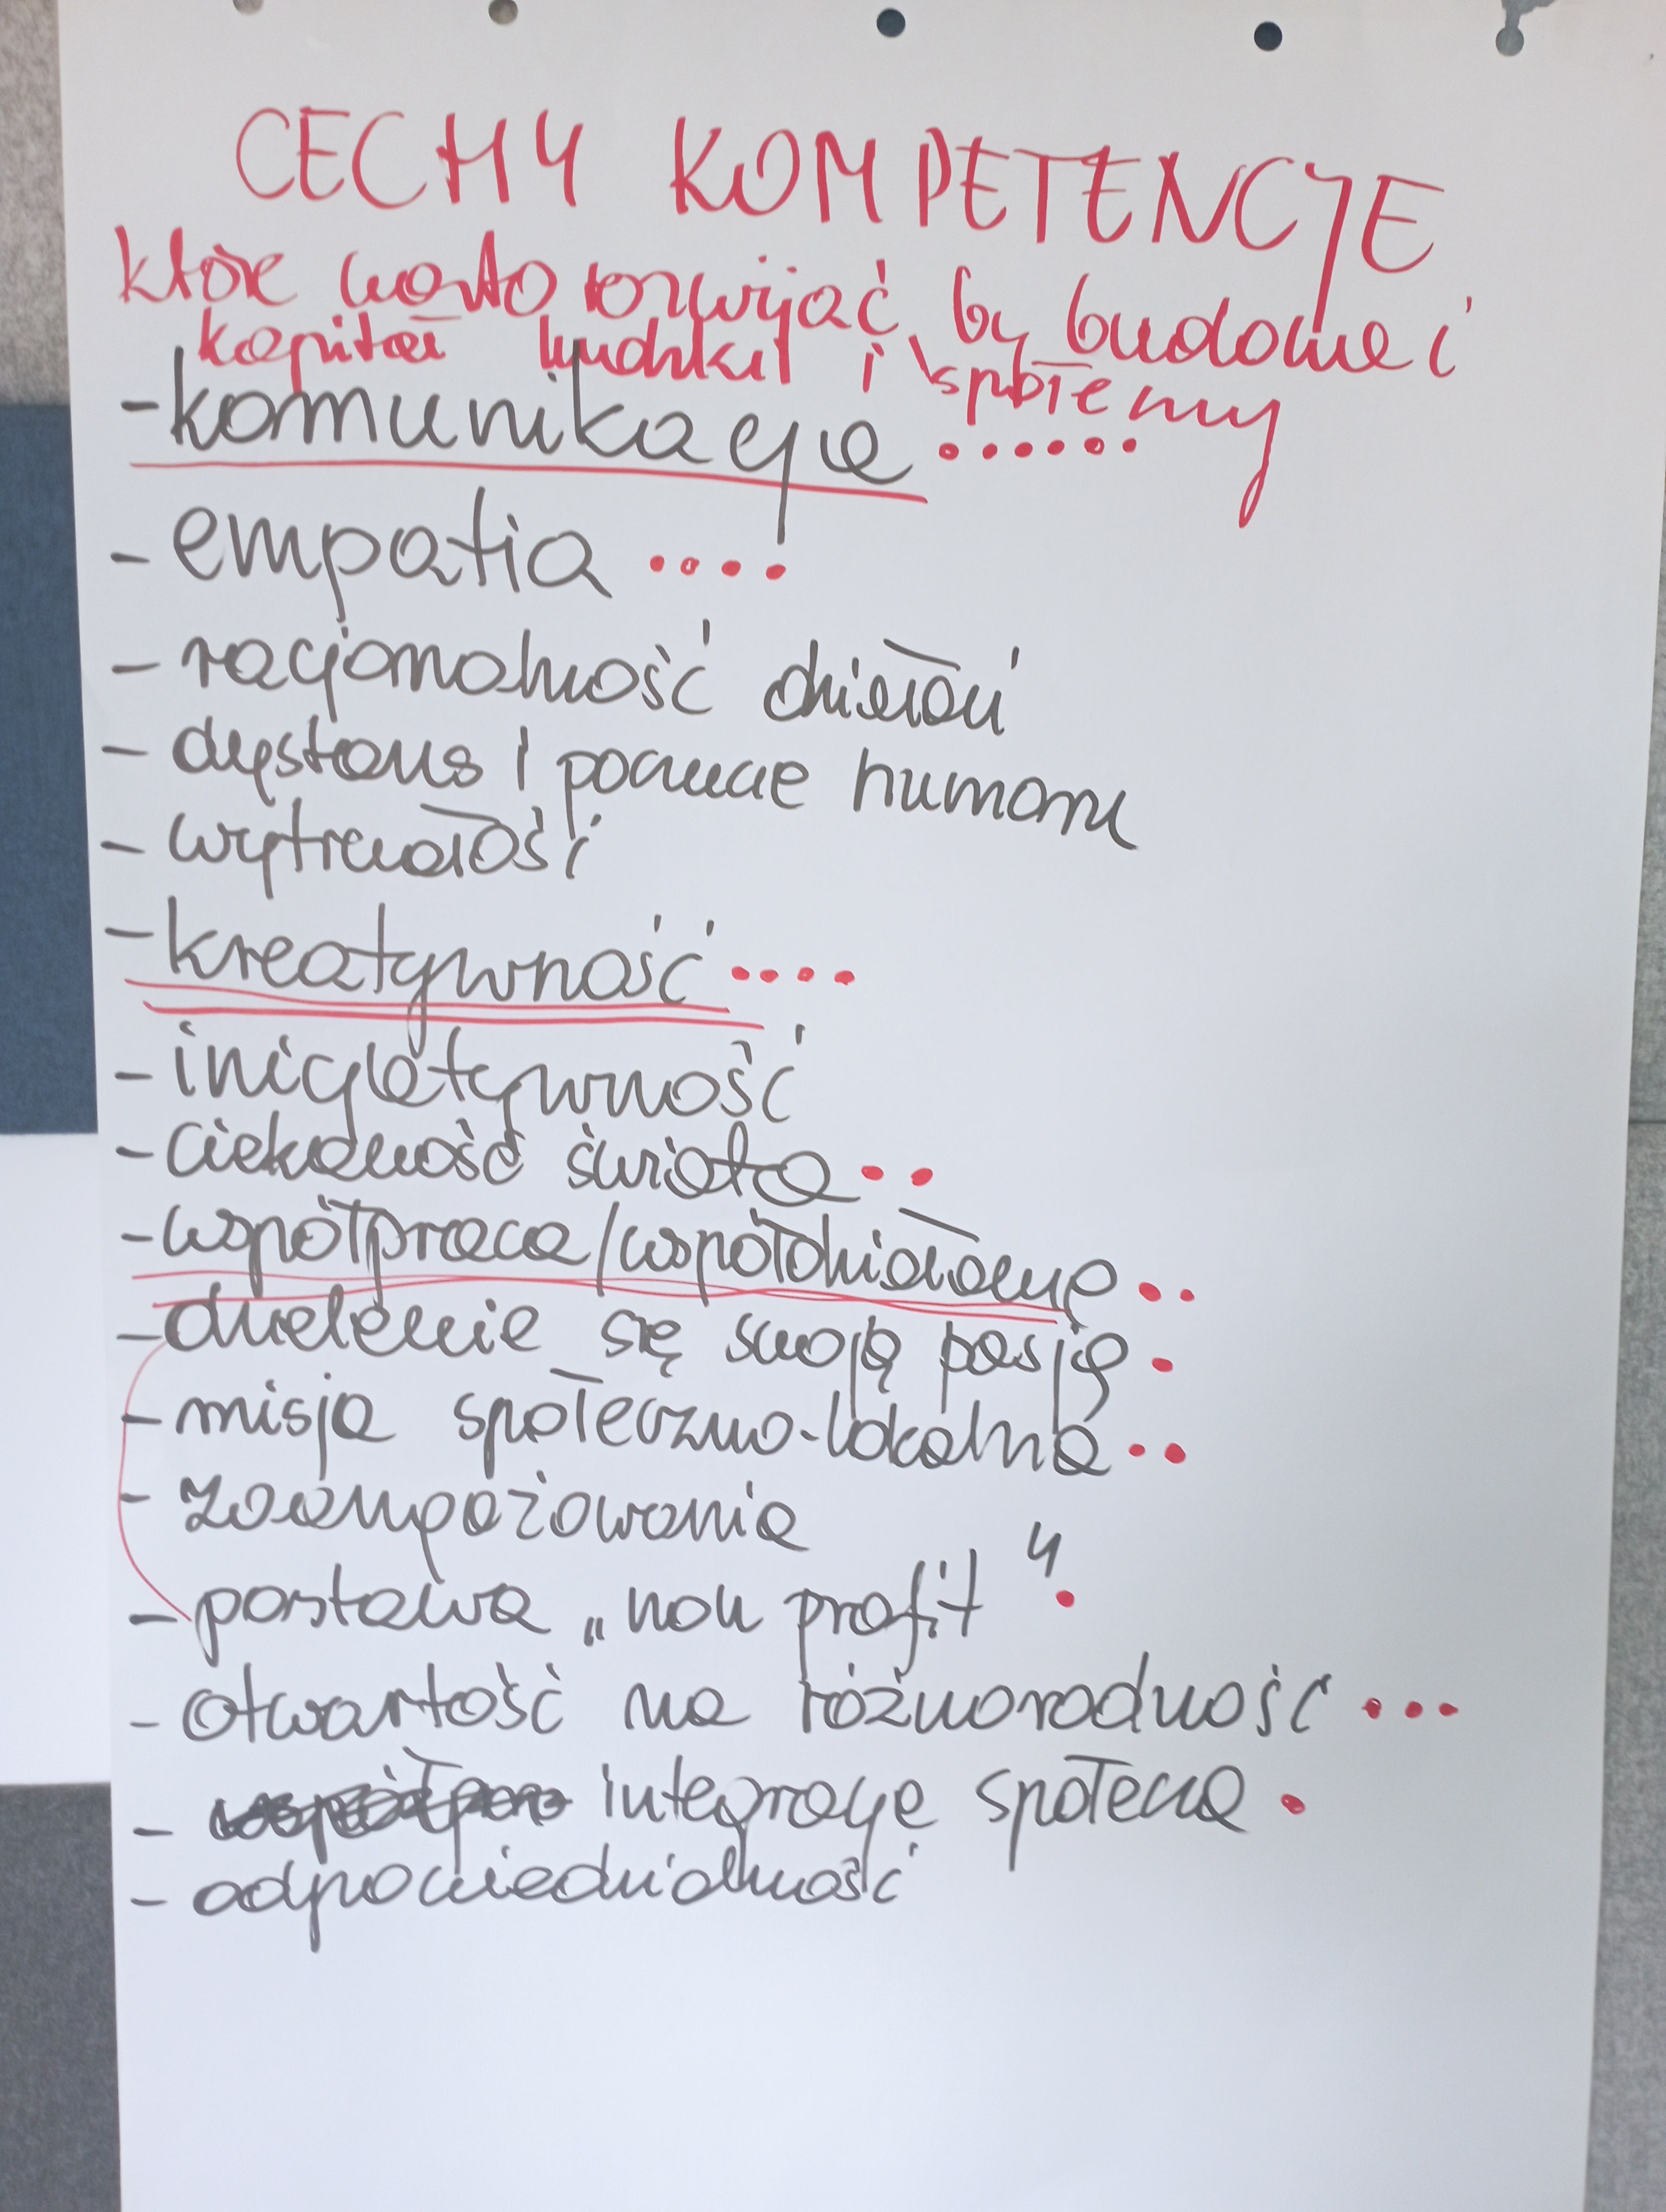 CECHY KOMPETENCJE
które warto rozwijać, by budować
kapitał ludzki i społeczny
- komunikacja ......
- empatia ....
- racjonalność działań
- dystans i poczucie humoru
- wytrwałość
- kreatywność ....
- inicjatywność
- ciekawość świata ..
- współpraca/współdziałanie ..
- dzielenie się swoją pasją .
- misja społeczno-lokalna ..
- zaangażowania
- postawa „non profit" .
- otwartość na różnorodność ...
- integracja społeczna .
- odpowiedzialność